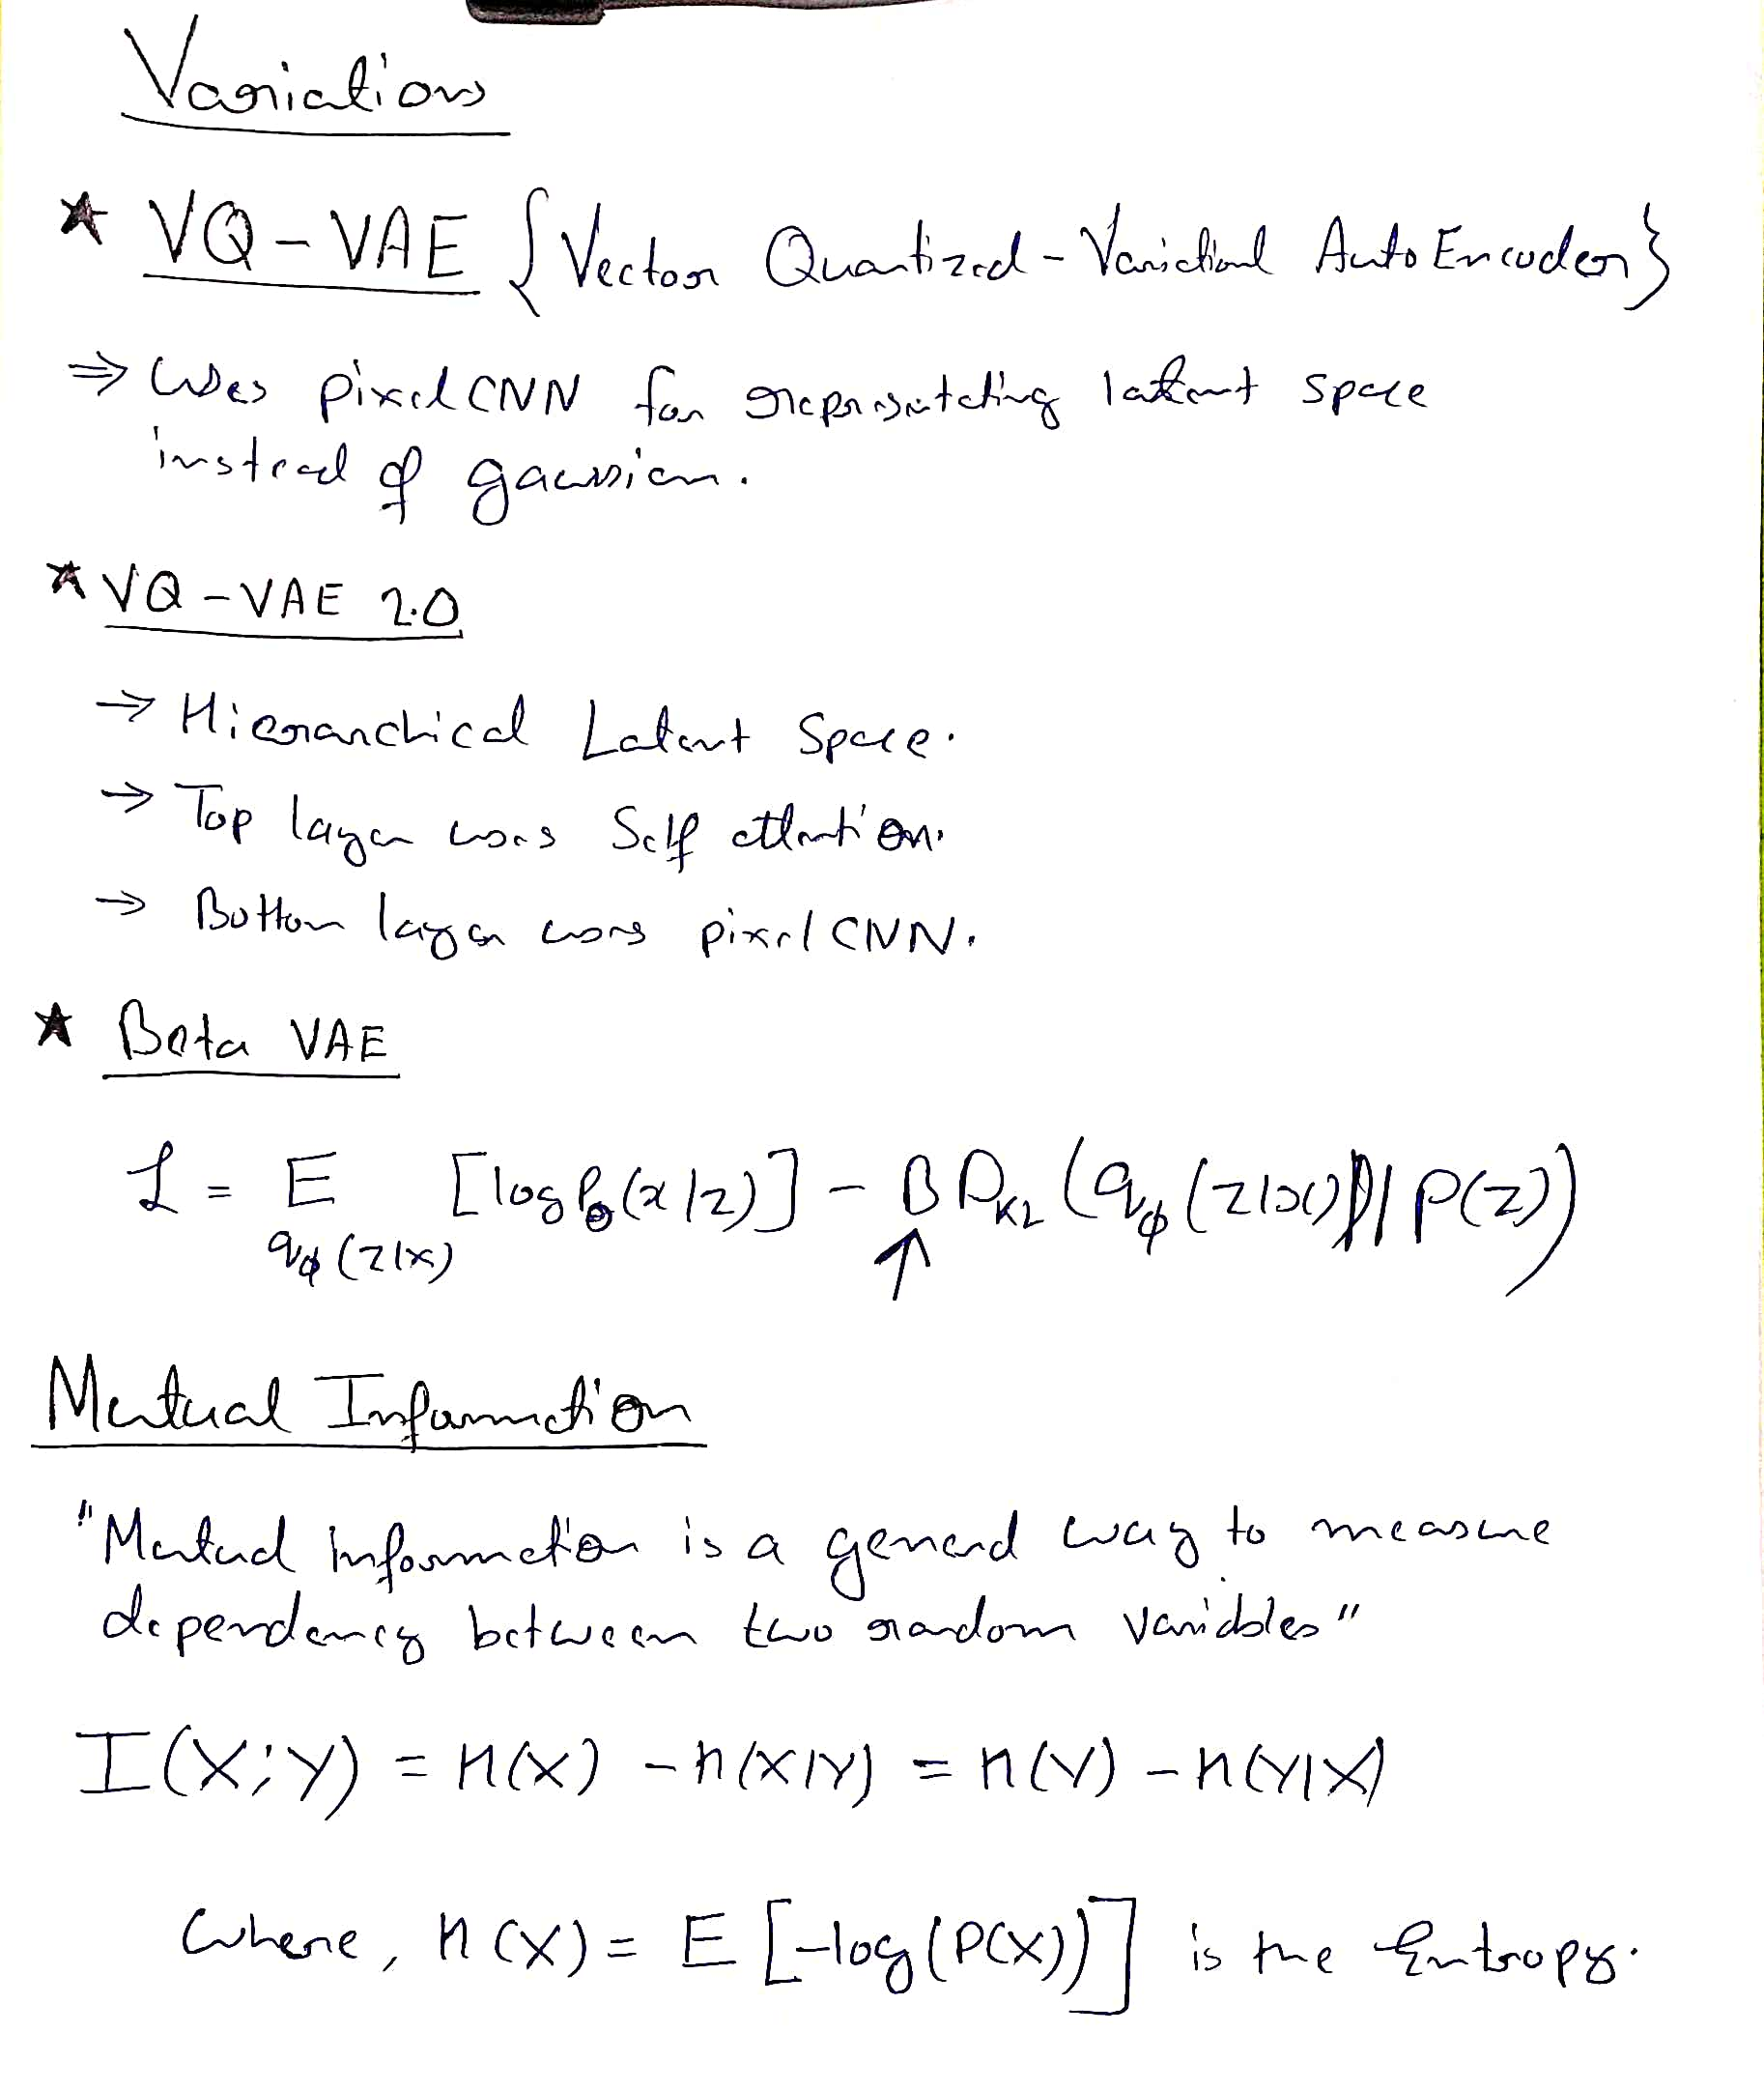 Variations
★ VQ-VAE {Vector Quantized - Variational AutoEncoder}
⇒ Uses pixelCNN for representating latent space
instead of gaussian.
★ VQ-VAE 2.0
→ Hierarchical Latent Space.
→ Top layer uses Self attention.
→ Bottom layer uses pixel CNN.
★ Beta VAE
L = E_{qφ(z|x)} [log Pθ(x|z)] - β D_KL (qφ(z|x) || P(z))
↑
Mutual Information
"Mutual information is a general way to measure
dependency between two random variables"
I(X;Y) = H(X) - H(X|Y) = H(Y) - H(Y|X)
Where, H(X) = E[-log(P(X))] is the Entropy.